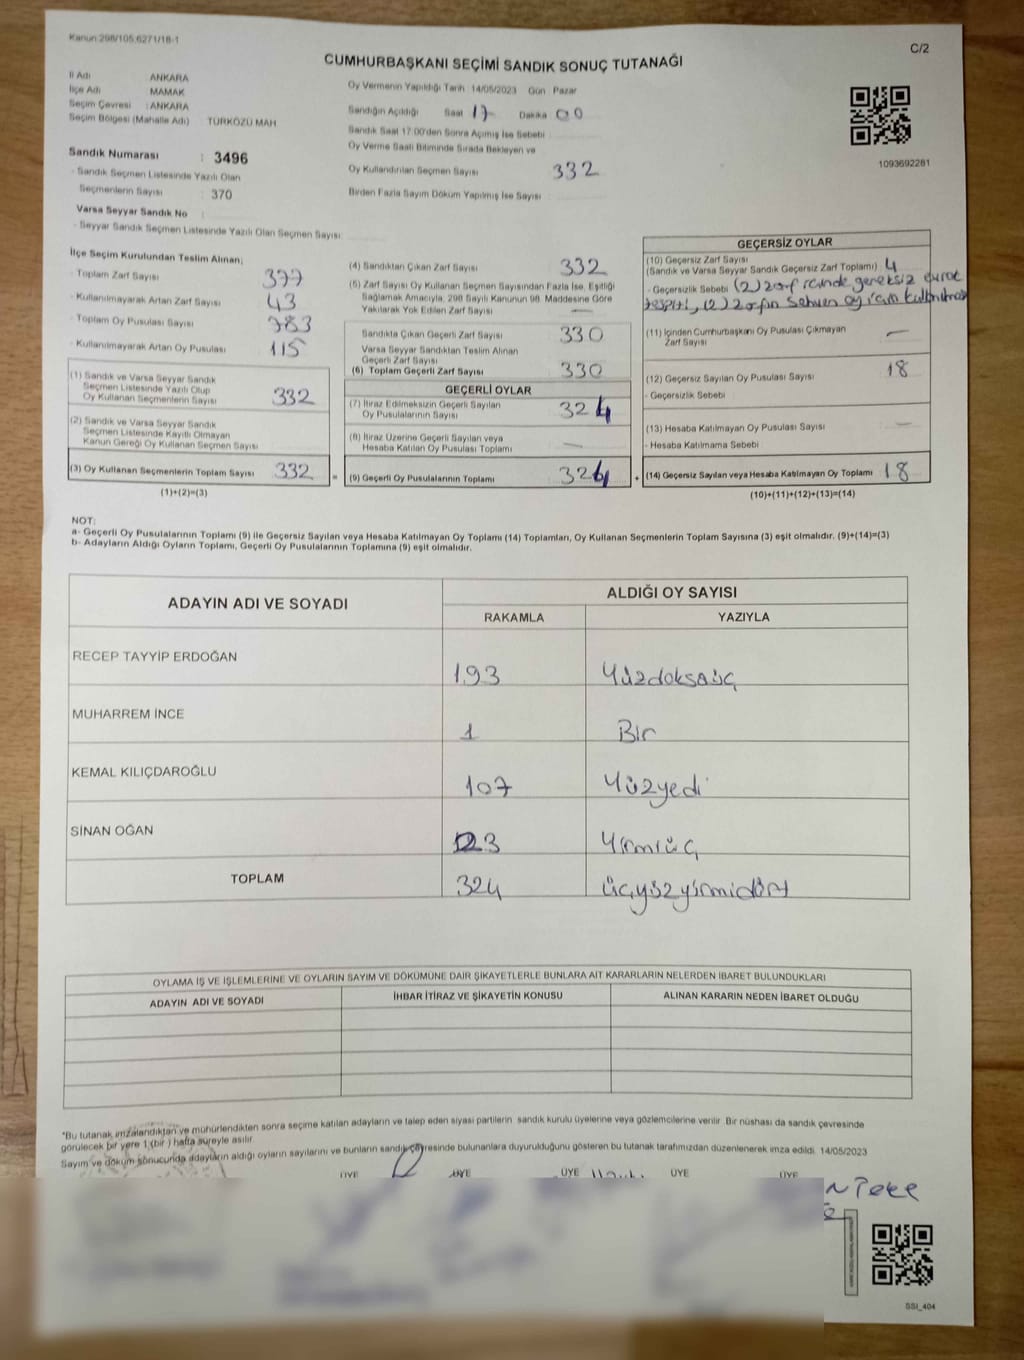 Kanun:298/105,6271/18-1
C/2
CUMHURBAŞKANI SEÇİMİ SANDIK SONUÇ TUTANAĞI
İl Adı ANKARA
İlçe Adı MAMAK
Seçim Çevresi : ANKARA
Seçim Bölgesi (Mahalle Adı) TÜRKÖZÜ MAH.
Sandık Numarası : 3496
- Sandık Seçmen Listesinde Yazılı Olan
Seçmenlerin Sayısı : 370
Varsa Seyyar Sandık No :
- Seyyar Sandık Seçmen Listesinde Yazılı Olan Seçmen Sayısı:
Oy Vermenin Yapıldığı Tarih 14/05/2023 Gün Pazar
Sandığın Açıldığı Saat 17 Dakika 00
Sandık Saat 17.00'den Sonra Açılmış İse Sebebi :
Oy Verme Saati Bitiminde Sırada Bekleyen ve
Oy Kullandırılan Seçmen Sayısı 332
Birden Fazla Sayım Döküm Yapılmış İse Sayısı :
1093692281
İlçe Seçim Kurulundan Teslim Alınan;
- Toplam Zarf Sayısı 377
- Kullanılmayarak Artan Zarf Sayısı 43
- Toplam Oy Pusulası Sayısı 383
- Kullanılmayarak Artan Oy Pusulası 115
(1) Sandık ve Varsa Seyyar Sandık
Seçmen Listesinde Yazılı Olup
Oy Kullanan Seçmenlerin Sayısı 332
(2) Sandık ve Varsa Seyyar Sandık
Seçmen Listesinde Kayıtlı Olmayan
Kanun Gereği Oy Kullanan Seçmen Sayısı
(3) Oy Kullanan Seçmenlerin Toplam Sayısı 332 =
(1)+(2)=(3)
(4) Sandıktan Çıkan Zarf Sayısı 332
(5) Zarf Sayısı Oy Kullanan Seçmen Sayısından Fazla İse, Eşitliği
Sağlamak Amacıyla, 298 Sayılı Kanunun 98. Maddesine Göre
Yakılarak Yok Edilen Zarf Sayısı —
Sandıkta Çıkan Geçerli Zarf Sayısı 330
Varsa Seyyar Sandıktan Teslim Alınan
Geçerli Zarf Sayısı
(6) Toplam Geçerli Zarf Sayısı 330
GEÇERLİ OYLAR
(7) İtiraz Edilmeksizin Geçerli Sayılan
Oy Pusulalarının Sayısı 324
(8) İtiraz Üzerine Geçerli Sayılan veya
Hesaba Katılan Oy Pusulası Toplamı —
(9) Geçerli Oy Pusulalarının Toplamı 324 +
GEÇERSİZ OYLAR
(10) Geçersiz Zarf Sayısı
(Sandık ve Varsa Seyyar Sandık Geçersiz Zarf Toplamı) 4
- Geçersizlik Sebebi (2) zarf içinde gereksiz evrak
tespiti, (2) zarfın Sehven oy için kullanılması
(11) İçinden Cumhurbaşkanı Oy Pusulası Çıkmayan
Zarf Sayısı —
(12) Geçersiz Sayılan Oy Pusulası Sayısı 18
- Geçersizlik Sebebi :
(13) Hesaba Katılmayan Oy Pusulası Sayısı —
- Hesaba Katılmama Sebebi :
(14) Geçersiz Sayılan veya Hesaba Katılmayan Oy Toplamı 18
(10)+(11)+(12)+(13)=(14)
NOT:
a- Geçerli Oy Pusulalarının Toplamı (9) ile Geçersiz Sayılan veya Hesaba Katılmayan Oy Toplamı (14) Toplamları, Oy Kullanan Seçmenlerin Toplam Sayısına (3) eşit olmalıdır. (9)+(14)=(3)
b- Adayların Aldığı Oyların Toplamı, Geçerli Oy Pusulalarının Toplamına (9) eşit olmalıdır.
ADAYIN ADI VE SOYADI ALDIĞI OY SAYISI
RAKAMLA YAZIYLA
RECEP TAYYİP ERDOĞAN 193 Yüzdoksaüç
MUHARREM İNCE 1 Bir
KEMAL KILIÇDAROĞLU 107 Yüzyedi
SİNAN OĞAN 23 Yirmiüç
TOPLAM 324 üçyüzyirmidört
OYLAMA İŞ VE İŞLEMLERİNE VE OYLARIN SAYIM VE DÖKÜMÜNE DAİR ŞİKAYETLERLE BUNLARA AİT KARARLARIN NELERDEN İBARET BULUNDUKLARI
ADAYIN ADI VE SOYADI İHBAR İTİRAZ VE ŞİKAYETİN KONUSU ALINAN KARARIN NEDEN İBARET OLDUĞU
*Bu tutanak imzalandıktan ve mühürlendikten sonra seçime katılan adayların ve talep eden siyasi partilerin sandık kurulu üyelerine veya gözlemcilerine verilir. Bir nüshası da sandık çevresinde
görülecek bir yere 1 (bir) hafta süreyle asılır.
Sayım ve döküm sonucunda adayların aldığı oyların sayılarını ve bunların sandık çevresinde bulunanlara duyurulduğunu gösteren bu tutanak tarafımızdan düzenlenerek imza edildi. 14/05/2023
ÜYE ÜYE ÜYE ÜYE ÜYE
SSI_404